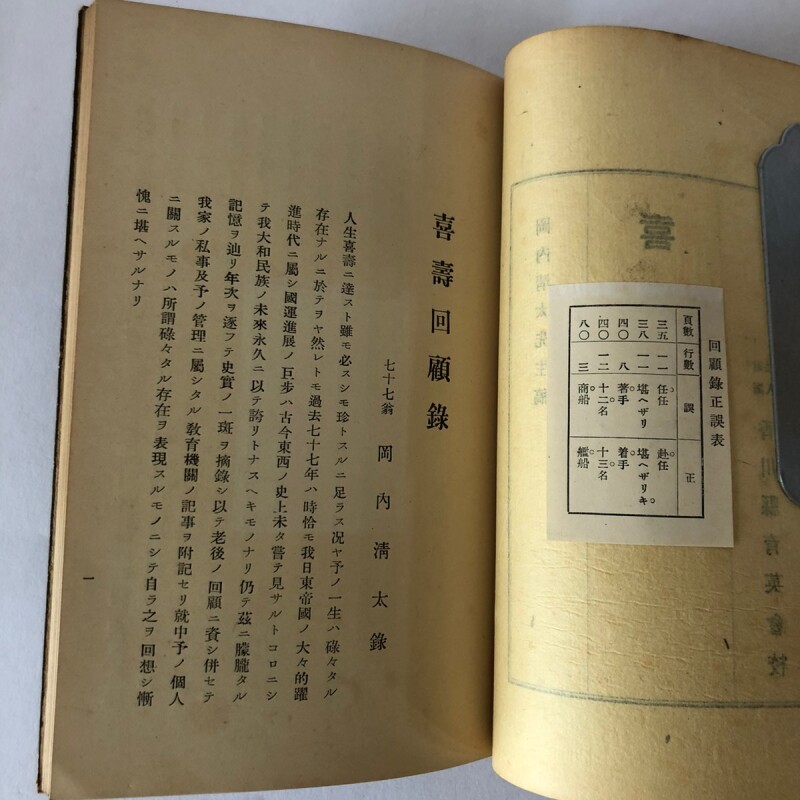 回顧錄正誤表
頁數 行數 誤 正
三五 一一 任任 赴任
三八 一一 堪ヘザリ 堪ヘザリキ
四〇 八 著手 着手
四〇 一二 十二名 十三名
八〇 三 商船 艦船
喜壽回顧錄
七十七翁 岡內淸太錄
人生喜壽ニ達スト雖モ必スシモ珍トスルニ足ラス况ヤ予ノ一生ハ碌々タル
存在ナルニ於テヲヤ然レトモ過去七十七年ハ時恰モ我日東帝國ノ大々的躍
進時代ニ屬シ國運進展ノ巨步ハ古今東西ノ史上未タ嘗テ見サルトコロニシ
テ我大和民族ノ未來永久ニ以テ誇リトナスヘキモノナリ仍テ茲ニ朦朧タル
記憶ヲ辿リ年次ヲ逐フテ史實ノ一斑ヲ摘錄シ以テ老後ノ回顧ニ資シ併セテ
我家ノ私事及予ノ管理ニ屬シタル敎育機關ノ記事ヲ附記セリ就中予ノ個人
ニ關スルモノハ所謂碌々タル存在ヲ表現スルモノニシテ自ラ之ヲ回想シ慚
愧ニ堪ヘサルナリ
一